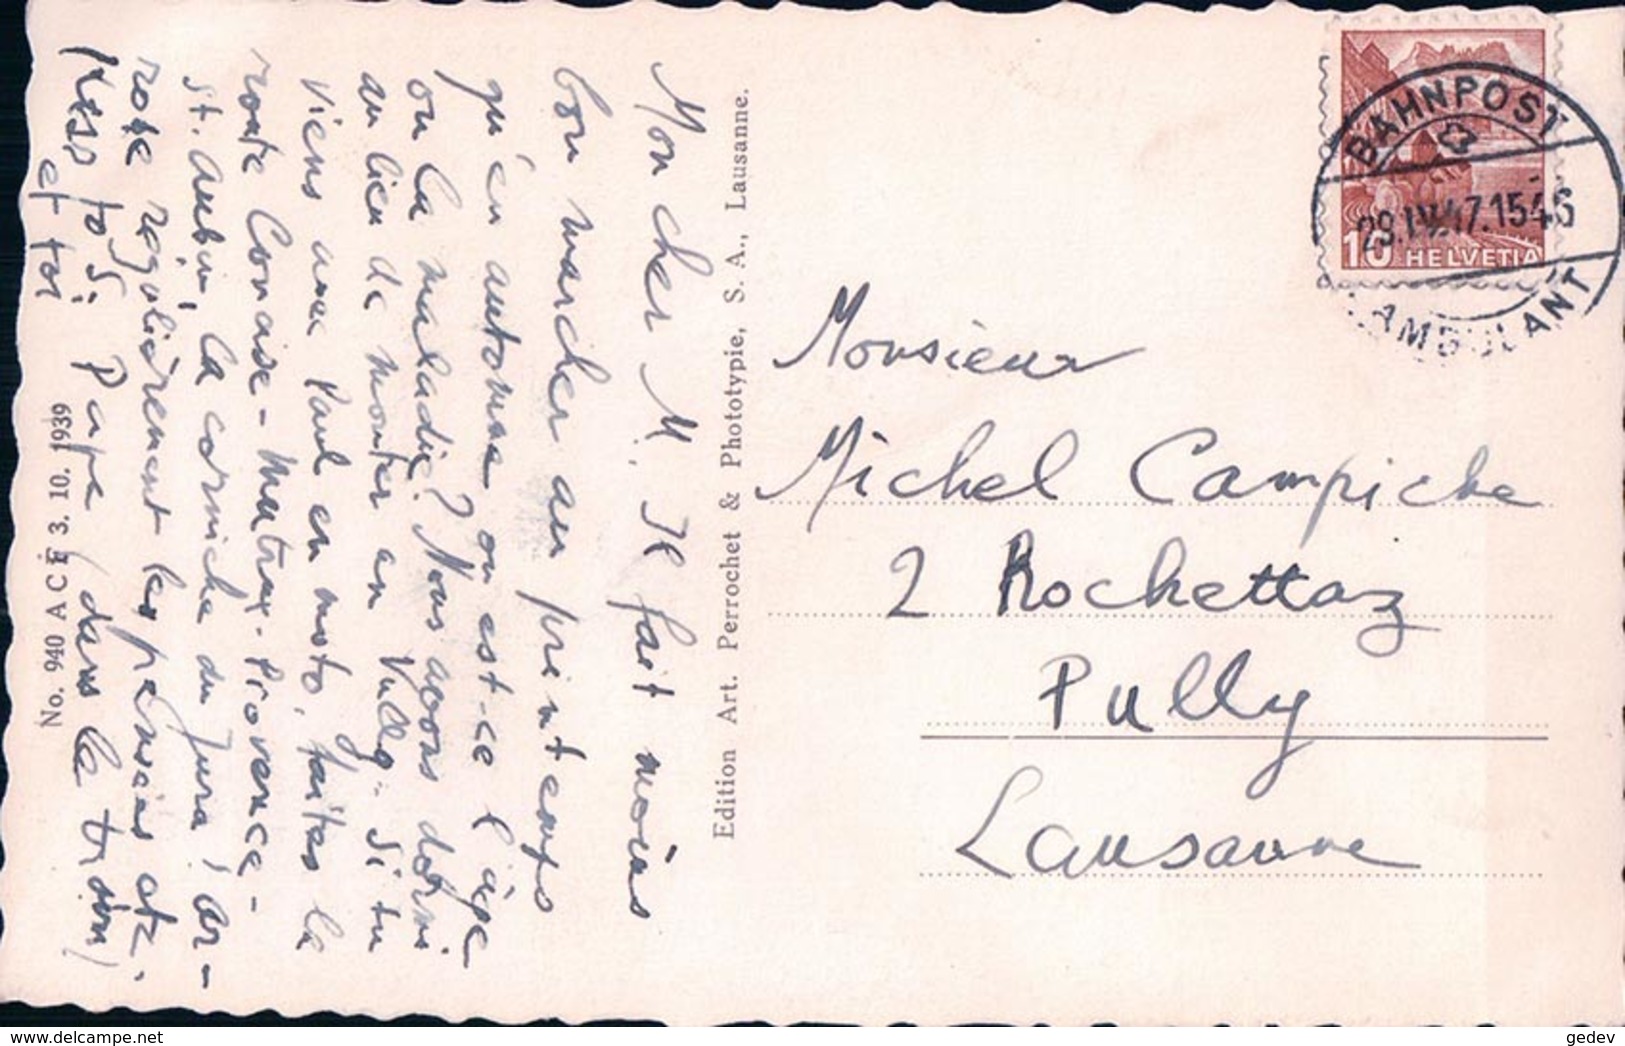 Mon cher M. Il fait moins
bon marcher au printemps
qu'en automne ou est-ce l'âge
ou la maladie? Nous avons dormi
au lieu de monter au Vully. Si tu
viens avec Paul en moto, faites la
route Concise - Mutrux - Provence -
St. Aubin, la corniche du Jura!
et toi
Papa (dans le train)
No. 940 A C E 3. 10. 1939
Edition Art. Perrochet & Phototypie, S. A., Lausanne.
BAHNPOST
29.IV.47.1546
AMBULANT
10 HELVETIA
Monsieur
Michel Campiche
2 Rochettaz
Pully
Lausanne
gedev
www.delcampe.net